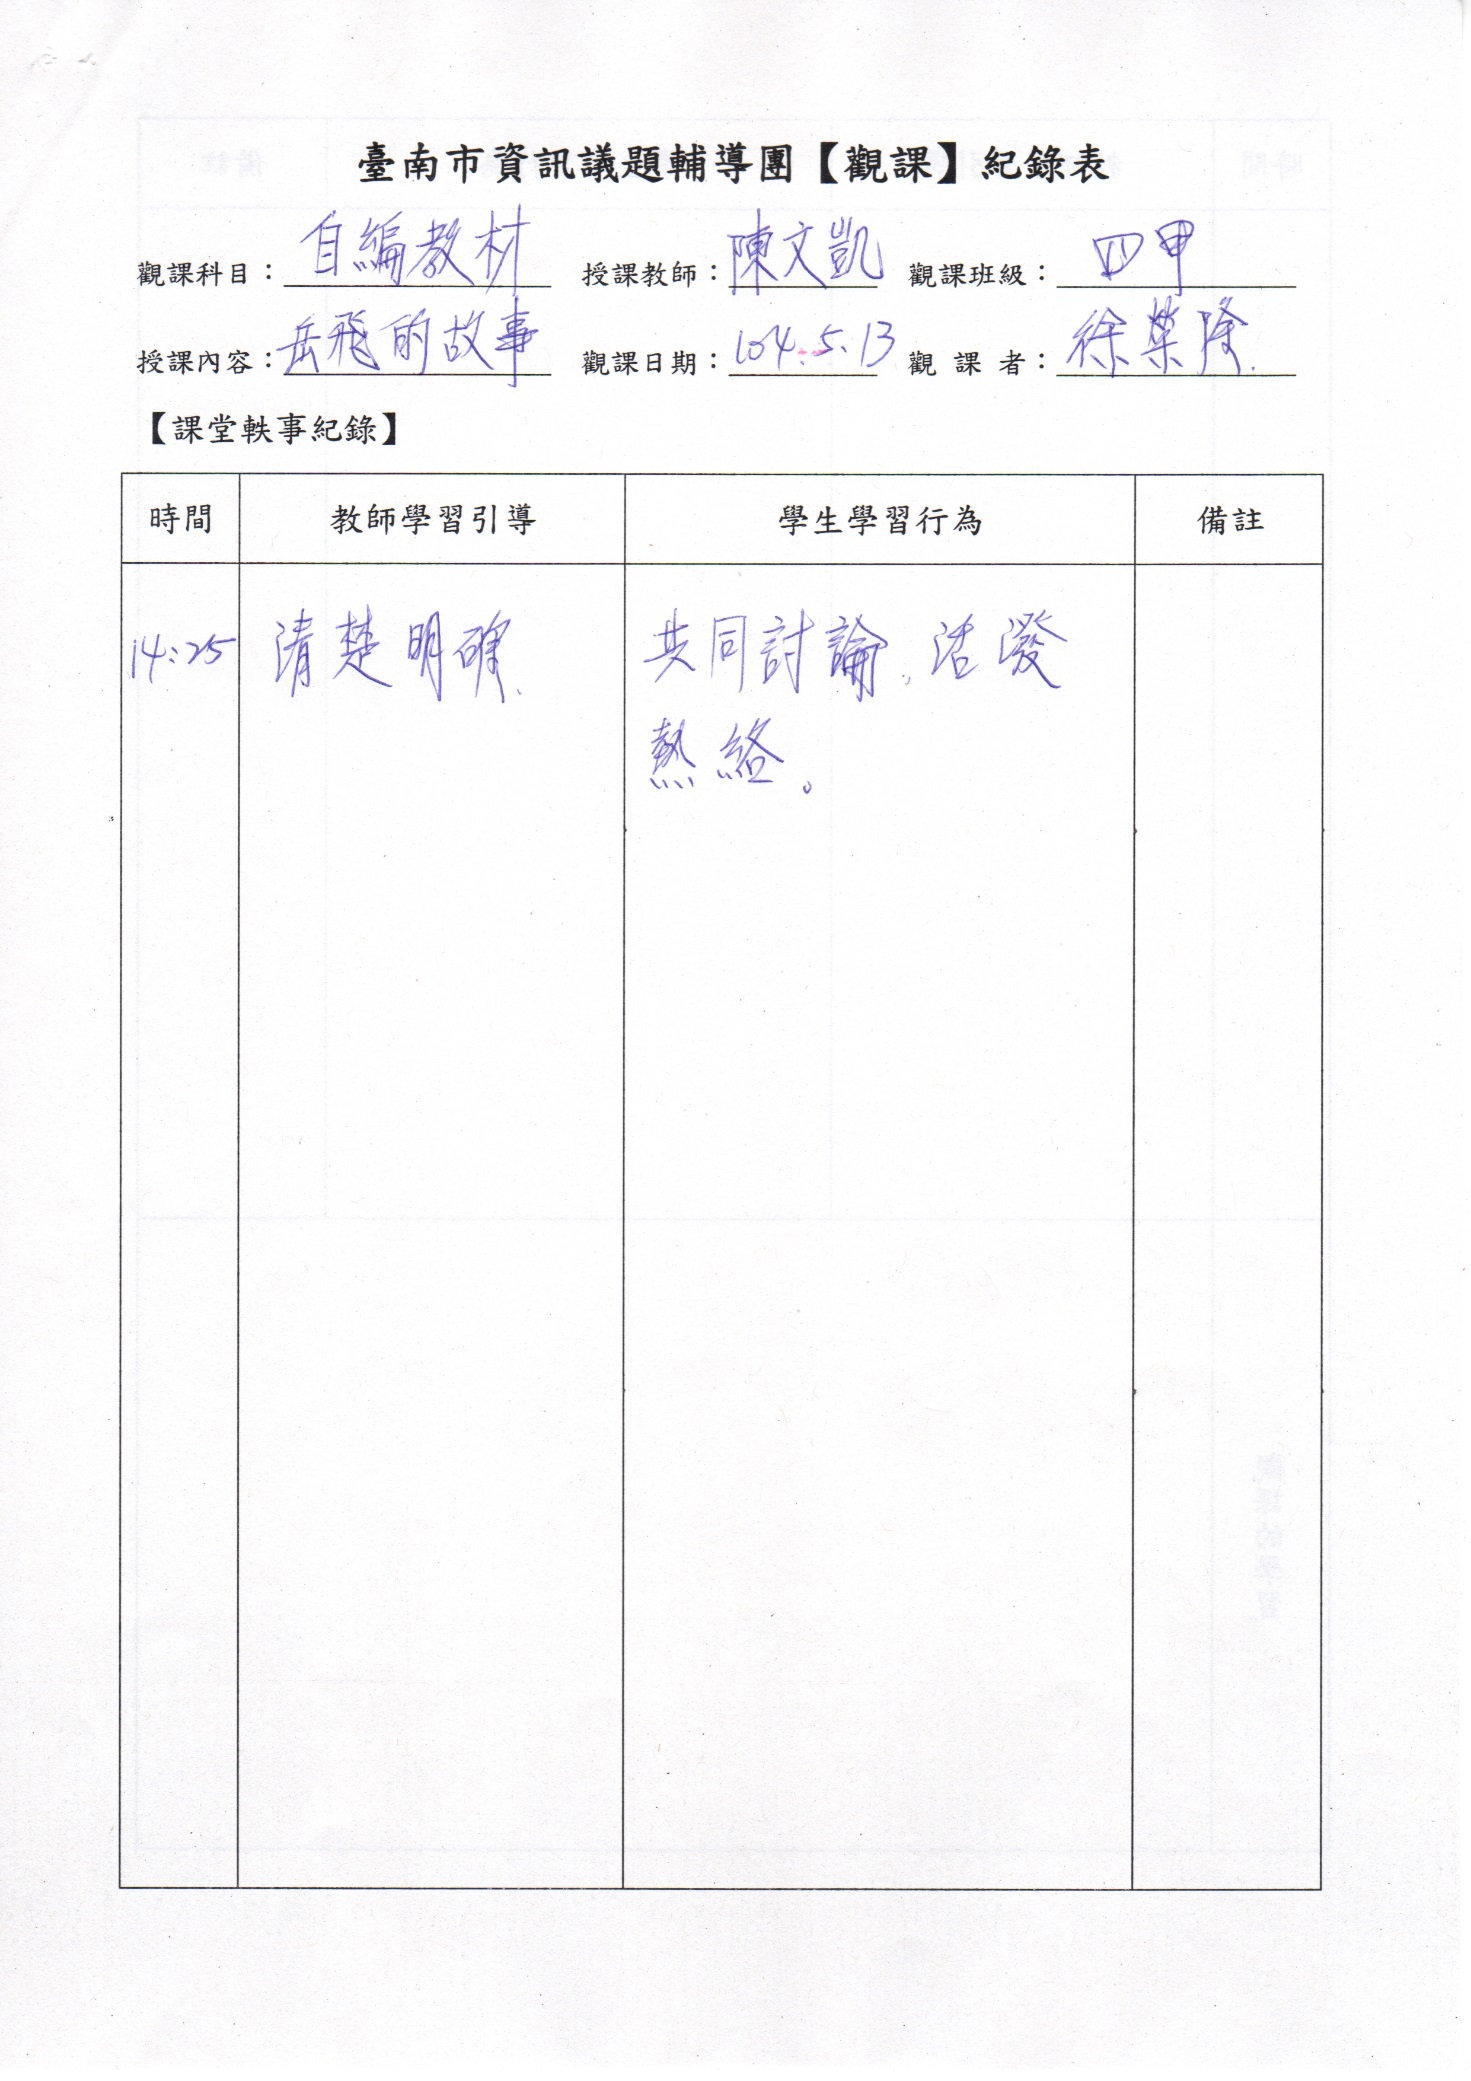 臺南市資訊議題輔導團【觀課】紀錄表
觀課科目：自編教材 授課教師：陳文凱 觀課班級：四甲
授課內容：岳飛的故事 觀課日期：104.5.13 觀課者：徐榮隆
【課堂軼事紀錄】
時間 教師學習引導 學生學習行為 備註
14:25 清楚明確、 共同討論、活潑
熱絡。